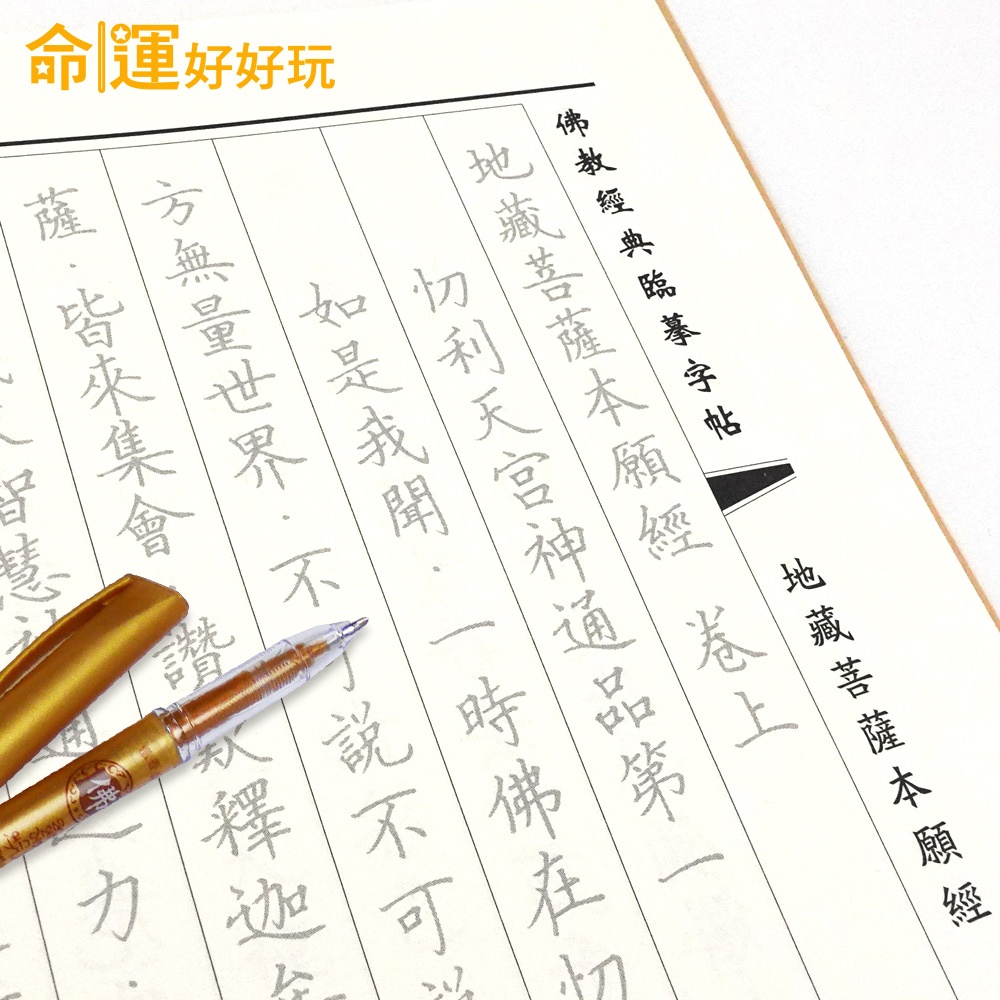 命運好好玩
佛教經典臨摹字帖
地藏菩薩本願經
地藏菩薩本願經 卷上
忉利天宮神通品第一
如是我聞．一時佛在忉
方無量世界．不可說不可說
薩．皆來集會．讚歎釋迦
智慧神通之力．